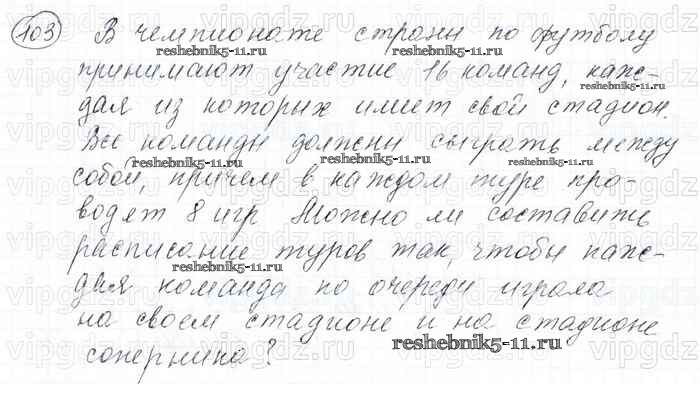 103 В чемпионате страны по футболу
принимают участие 16 команд, каж-
дая из которых имеет свой стадион.
Все команды должны сыграть между
собой, причём в каждом туре про-
водят 8 игр. Можно ли составить
расписание туров так, чтобы каж-
дая команда по очереди играла
на своём стадионе и на стадионе
соперника?
reshebnik5-11.ru
reshebnik5-11.ru
reshebnik5-11.ru
reshebnik5-11.ru
reshebnik5-11.ru
reshebnik5-11.ru
reshebnik5-11.ru
reshebnik5-11.ru